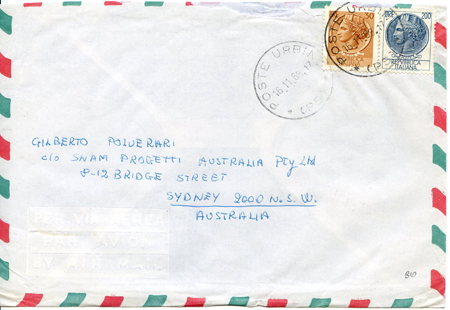 50
LIRE 200
POSTE URBIN
16.11.6
* (PS)
GILBERTO POLVERARI
c/o SNAM PROGETTI AUSTRALIA Pty Ltd
8-12 BRIDGE STREET
SYDNEY 2000 N.S.W.
AUSTRALIA
PER VIA AEREA
PAR AVION
BY AIR MAIL